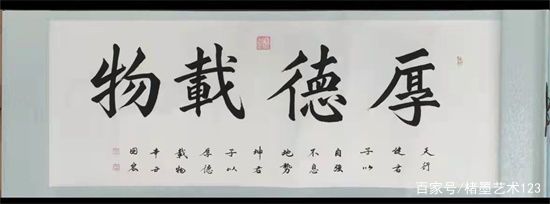 厚德載物
天行
健君
子以
自強
不息
地勢
坤君
子以
厚德
載物
辛丑
百家号/楮墨艺术123